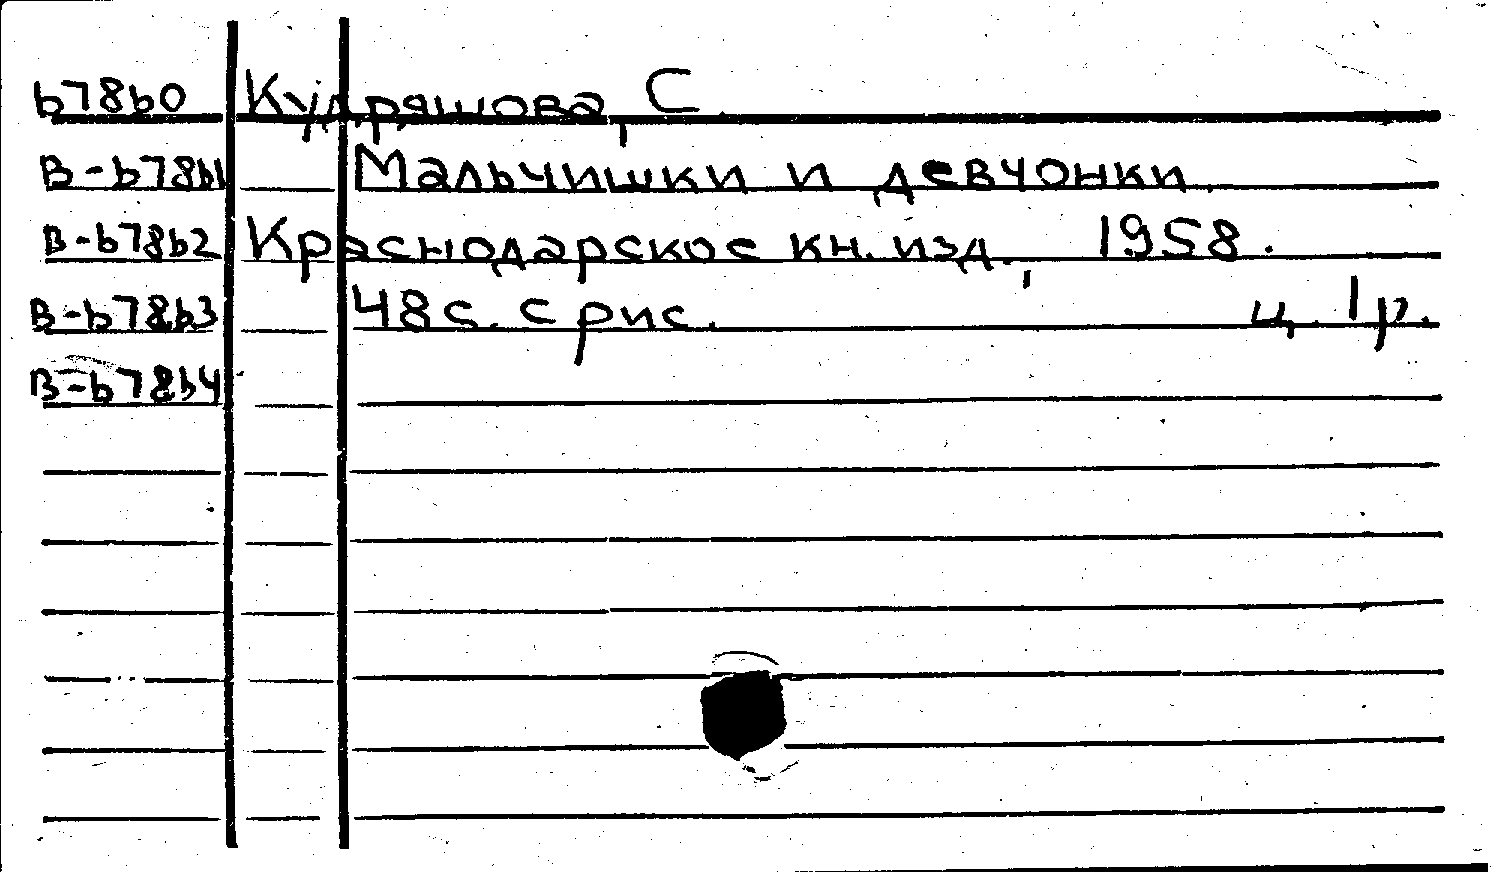 67860 Кудряшова, С.
В-67861 Мальчишки и девчонки.
В-67862 Краснодарское кн. изд., 1958.
В-67863 48 с. с рис. ц. 1 р.
В-67864